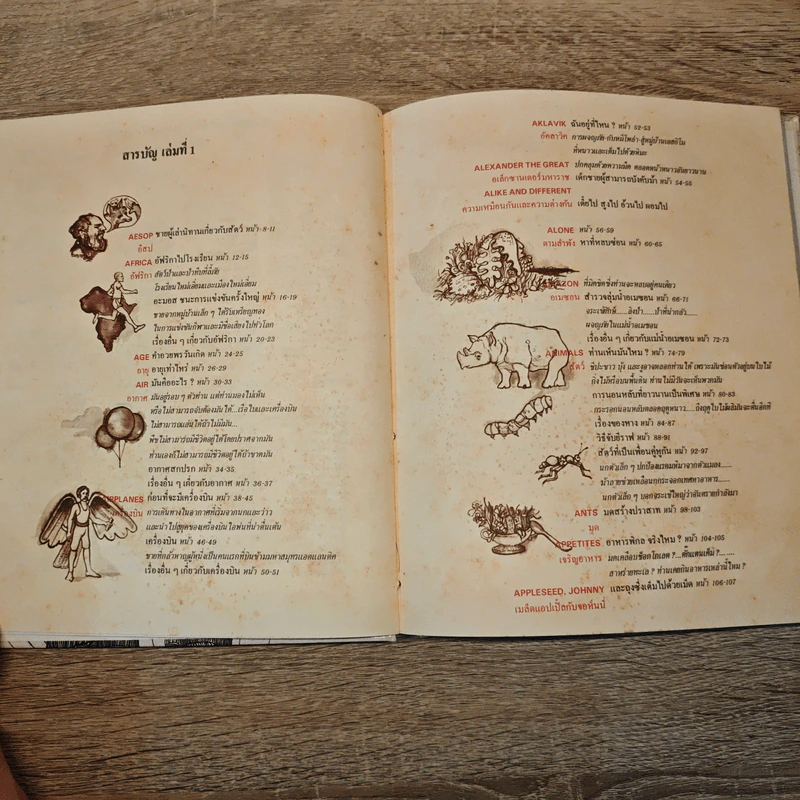 สารบัญ เล่มที่ 1
AESOP ชายผู้เล่านิทานเกี่ยวกับสัตว์ หน้า 8-11
อีสป
AFRICA อัฟริกาไปโรงเรียน หน้า 12-15
อัฟริกา สัตว์ป่าและป่าทึบที่ลี้ลับ
โรงเรียนใหม่เอี่ยมและเมืองใหม่เอี่ยม
อะมอส ชนะการแข่งขันครั้งใหญ่ หน้า 16-19
ชายจากหมู่บ้านเล็ก ๆ ได้รับเหรียญทอง
ในการแข่งขันกีฬาและมีชื่อเสียงไปทั่วโลก
เรื่องอื่น ๆ เกี่ยวกับอัฟริกา หน้า 20-23
AGE คำอวยพรวันเกิด หน้า 24-25
อายุ อายุเท่าไหร่ หน้า 26-29
AIR มันคืออะไร ? หน้า 30-33
อากาศ มันอยู่รอบ ๆ ตัวท่าน แต่ท่านมองไม่เห็น
หรือไม่สามารถจับต้องมันได้...เรือใบและเครื่องบิน
ไม่สามารถแล่นได้ถ้าไม่มีมัน...
พืชไม่สามารถมีชีวิตอยู่ได้โดยปราศจากมัน
ท่านเองก็ไม่สามารถมีชีวิตอยู่ได้ถ้าขาดมัน
อากาศสกปรก หน้า 34-35
เรื่องอื่น ๆ เกี่ยวกับอากาศ หน้า 36-37
AIRPLANES ก่อนที่จะมีเครื่องบิน หน้า 38-45
เครื่องบิน การเดินทางในอากาศที่เริ่มจากนกและว่าว
และนำไปสู่ยุคของเครื่องบินไอพ่นที่น่าตื่นเต้น
เครื่องบิน หน้า 46-49
ชายที่กล้าหาญผู้หนึ่งเป็นคนแรกที่บินข้ามมหาสมุทรแอตแลนติค
เรื่องอื่น ๆ เกี่ยวกับเครื่องบิน หน้า 50-51
AKLAVIK ฉันอยู่ที่ไหน ? หน้า 52-53
อัคลาวิค การผจญภัย กับหมีโพล่า สู่หมู่บ้านเอสกิโม
ที่หนาวและเต็มไปด้วยหิมะ
ALEXANDER THE GREAT ปกคลุมด้วยความมืด ตลอดหน้าหนาวอันยาวนาน
อเล็กซานเดอร์มหาราช เด็กชายผู้สามารถบังคับม้า หน้า 54-55
ALIKE AND DIFFERENT
ความเหมือนกันและความต่างกัน เตี้ยไป สูงไป อ้วนไป ผอมไป
ALONE หน้า 56-59
ตามลำพัง หาที่หลบซ่อน หน้า 60-65
AMAZON ที่มิดชิดซึ่งท่านจะหลบอยู่คนเดียว
อเมซอน สำรวจลุ่มน้ำอเมซอน หน้า 66-71
จระเข้ยักษ์.....ลิงป่า.....ป่าที่น่ากลัว.....
ผจญภัยในแม่น้ำอเมซอน
เรื่องอื่น ๆ เกี่ยวกับแม่น้ำอเมซอน หน้า 72-73
ANIMALS ท่านเห็นมันไหม ? หน้า 74-79
สัตว์ ชีปะขาว บุ้ง และงูอาจหลอกท่านได้ เพราะมันซ่อนตัวอยู่บนใบไม้
กิ่งไม้หรือบนพื้นดิน ท่านไม่มีวันจะเห็นพวกมัน
การนอนหลับที่ยาวนานเป็นพิเศษ หน้า 80-83
กระรอกนอนหลับตลอดฤดูหนาว.....ถึงฤดูใบไม้ผลิมันจะตื่นอีกที
เรื่องของหาง หน้า 84-87
วิธีจับยีราฟ หน้า 88-91
สัตว์ที่เป็นเพื่อนคู่หูกัน หน้า 92-97
นกตัวเล็ก ๆ ปกป้องแรดพี่มาจากตัวแมลง.....
ม้าลายช่วยเหลือนกกระจอกเทศหาอาหาร.....
นกตัวเล็ก ๆ บอกจระเข้ใหญ่ว่าอันตรายกำลังมา
ANTS มดสร้างปราสาท หน้า 98-103
มด
APPETITES อาหารพิลึก จริงไหม ? หน้า 104-105
เจริญอาหาร มดเคลือบช็อคโกแลต.....ตั๊กแตนเค็ม?.....
สาหร่ายทะเล ? ท่านเคยกินอาหารเหล่านี้ไหม ?
APPLESEED, JOHNNY และถุงซึ่งเต็มไปด้วยเม็ด หน้า 106-107
เมล็ดแอปเปิ้ลกับจอห์นนี่